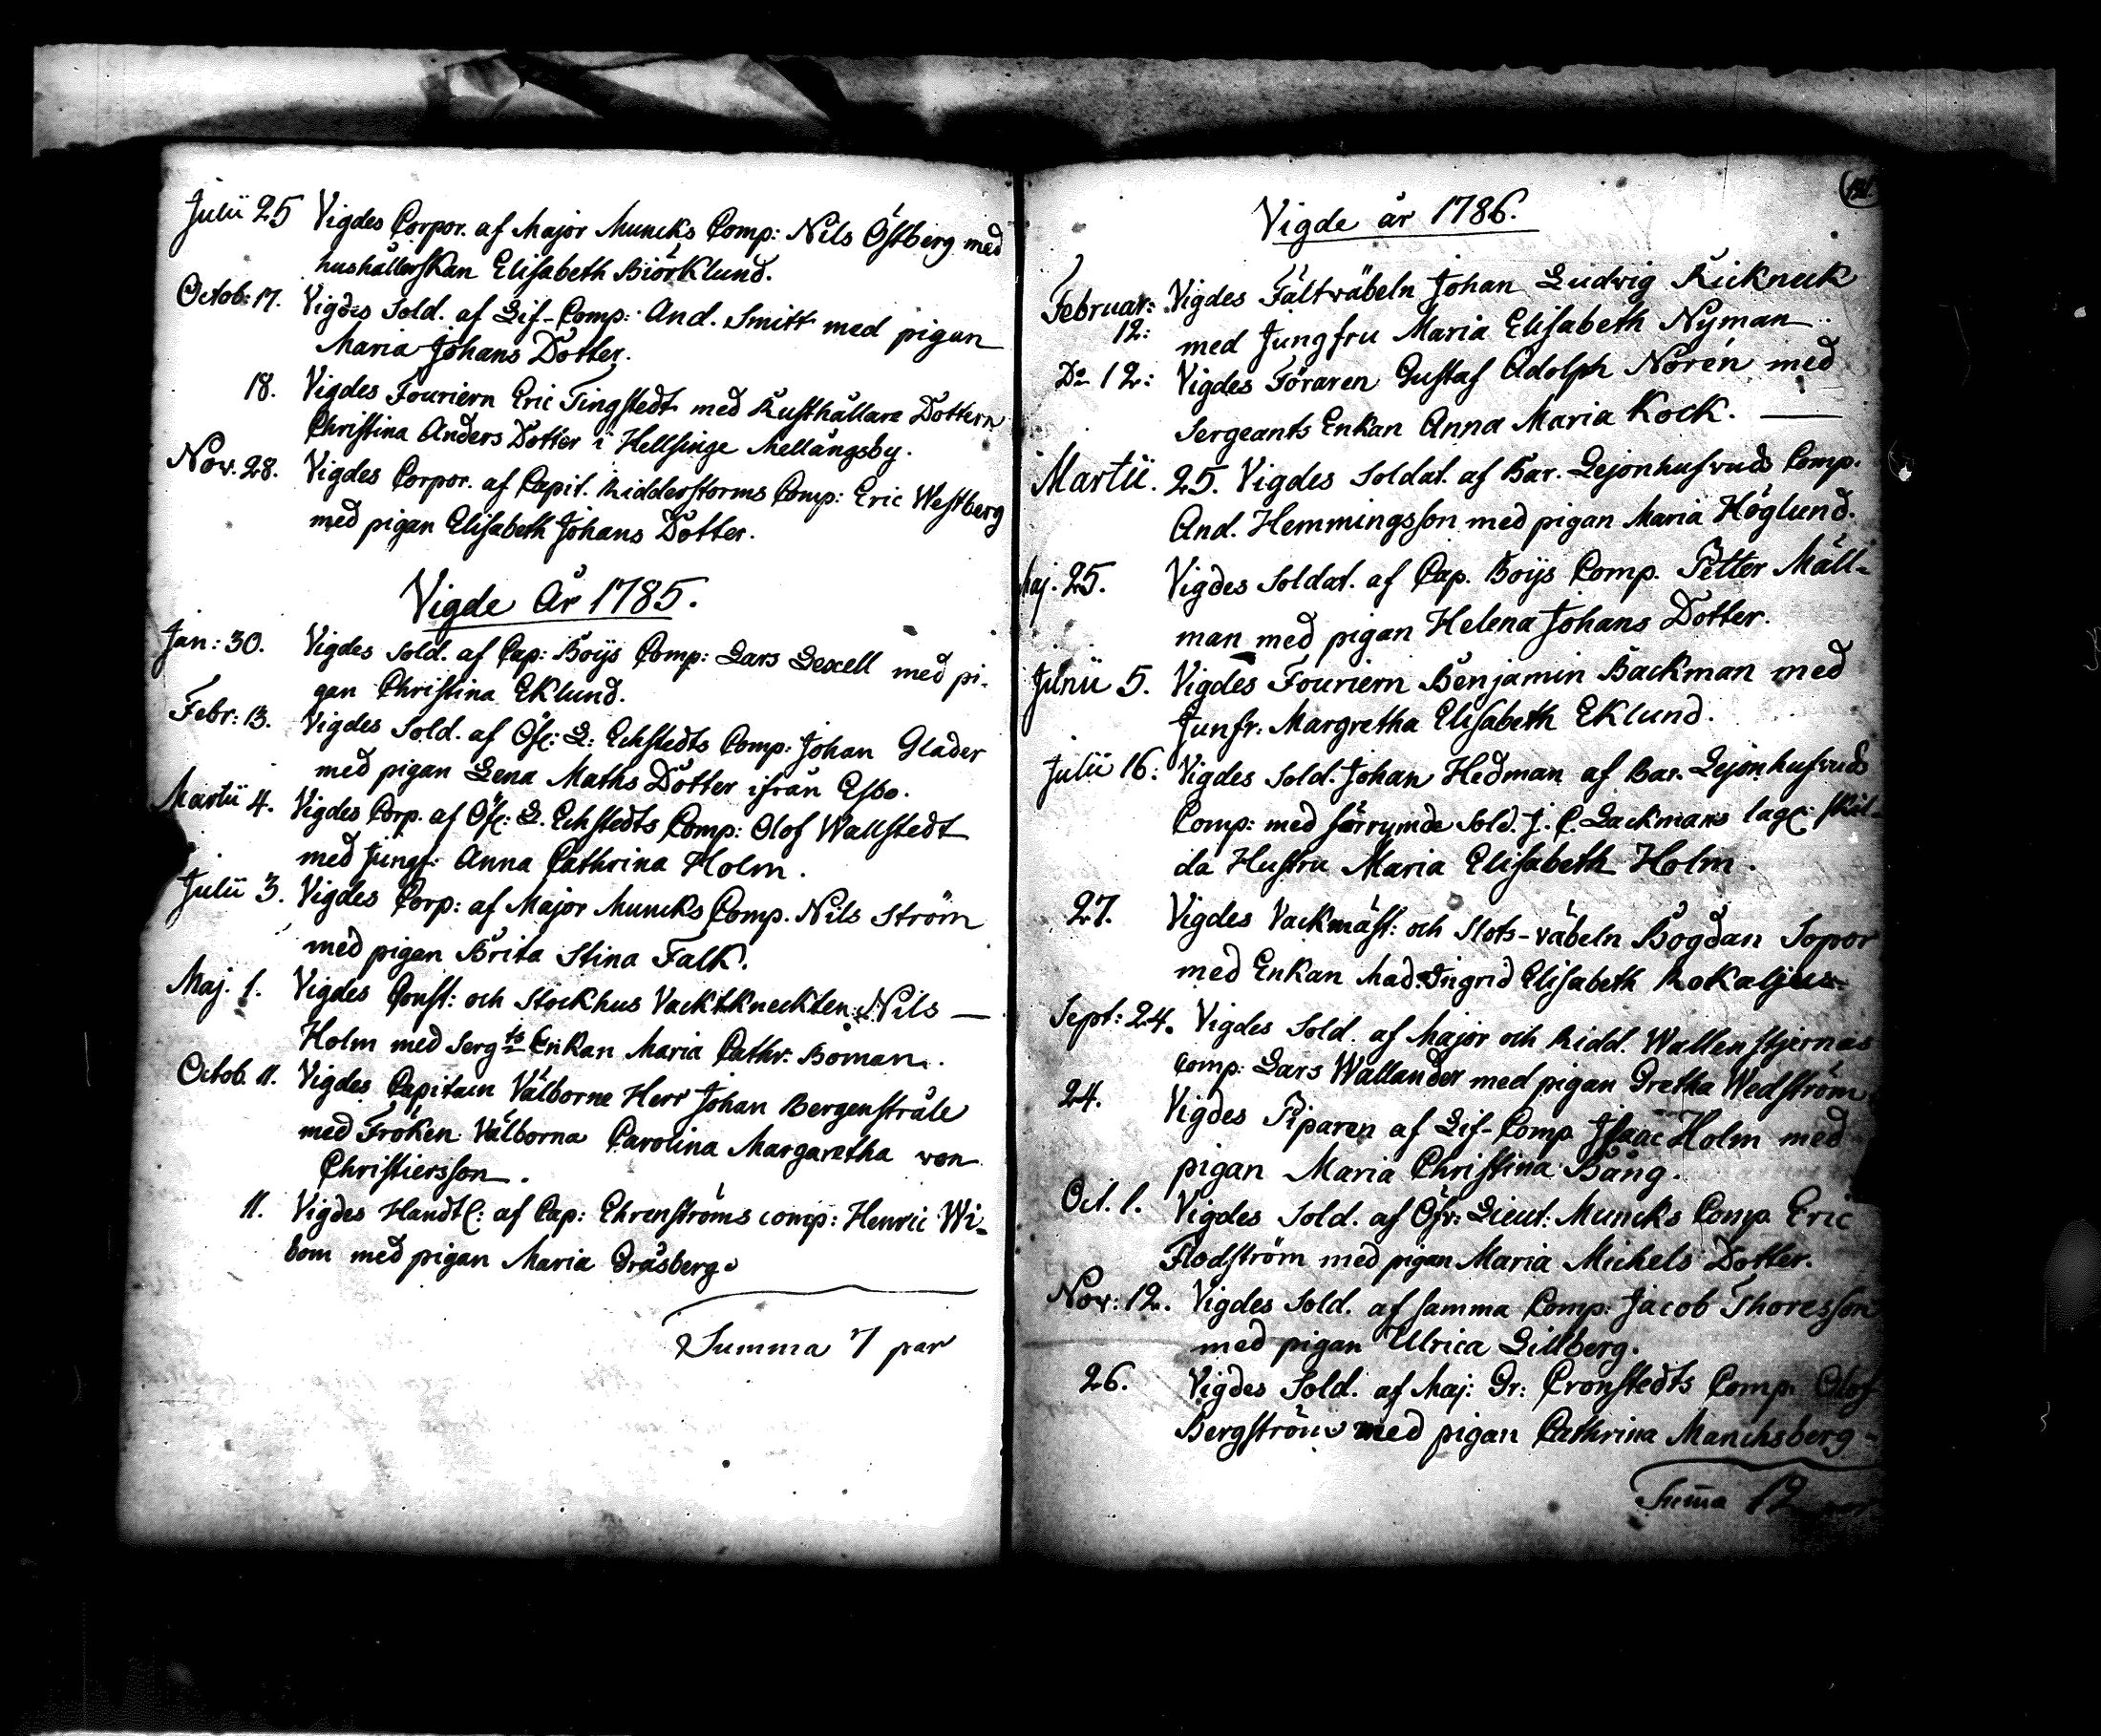 Julii 25 Vigdes Corpor. af Major Muncks Comp: Nils Östberg med
hushållerskan Elisabeth Biörklund.
Octob: 17. Vigdes Sold. af Lif-Comp: And. Smitt med pigan
Maria Johans Dotter.
18. Vigdes Fouriern Eric Tingstedt med Rusthållare Dottern
Christina Anders Dotter i Hellsinge Mellungsby.
Nov. 28. Vigdes Corpor. af Capit. Ridderstorms Comp: Eric Westberg
med pigan Elisabeth Johans Dotter.
Vigde År 1785.
Jan: 30. Vigdes Sold. af Cap: Boijs Comp: Lars Lexell med pi-
gan Christina Eklund.
Febr: 13. Vigdes Sold. af Öfv: L: Echstedts Comp: Johan Glader
med pigan Lena Maths Dotter ifrån Esbo.
Martii 4. Vigdes Corp. af Öfv: L. Echstedts Comp: Olof Wallstedt
med Jungf: Anna Cathrina Holm.
Julii 3. Vigdes Corp: af Major Muncks Comp. Nils Ström
med pigan Brita Stina Falk.
Maj. 1. Vigdes Const: och Stockhus Vacktkneckten Nils —
Holm med Serg:ts Enkan Maria Cathr: Boman.
Octob. 11. Vigdes Capitain Välborne Herr Johan Bergenstråle
med Fröken Välborna Carolina Margaretha von
Christiersson.
11. Vigdes Handtl: af Cap: Ehrenströms comp: Henric Wi-
bom med pigan Maria Gråsberg.
Summa 7 par
Vigde år 1786.
Februar: Vigdes Fältväbeln Johan Ludwig Rickneck
12: med Jungfru Maria Elisabeth Nyman
Do 12: Vigdes Föraren Gustaf Adolph Norén med
Sergeants Enkan Anna Maria Kock. —
Martii. 25. Vigdes Soldat. af Bar. Lejonhufvuds Comp.
And. Hemmingsson med pigan Maria Höglund.
Maj. 25. Vigdes Soldat. af Cap. Boijs Comp. Petter Mäll-
man med pigan Helena Johans Dotter.
Junii 5. Vigdes Fouriern Benjamin Backman med
Junfr: Margretha Elisabeth Eklund.
Julii 16: Vigdes Sold. Johan Hedman af Bar. Lejonhufvuds
Comp: med förrymde Sold. J. C. Lackmans lagl: skil-
da Hustru Maria Elisabeth Holm.
27. Vigdes Vackmäst: och Slots-väbeln Bogdan Sopor
med Enkan Mad. Ingrid Elisabeth
Sept: 24. Vigdes Sold. af Major och Ridd. Wallenstjernas
comp: Lars Wallander med pigan Gretha Wedström
24. Vigdes Piparen af Lif-Comp Isaac Holm med
pigan Maria Christina Bång.
Oct. 1. Vigdes Sold. af Öfv: Lieut: Muncks Comp. Eric
Flodström med pigan Maria Michels Dotter.
Nov: 12. Vigdes Sold. af samma Comp: Jacob Thoresson
med pigan Ulrica Lillberg.
26. Vigdes Sold. af Maj: Gr: Cronstedts Comp. Olof
Bergström med pigan Cathrina Manchsberg
Sum̄a 12